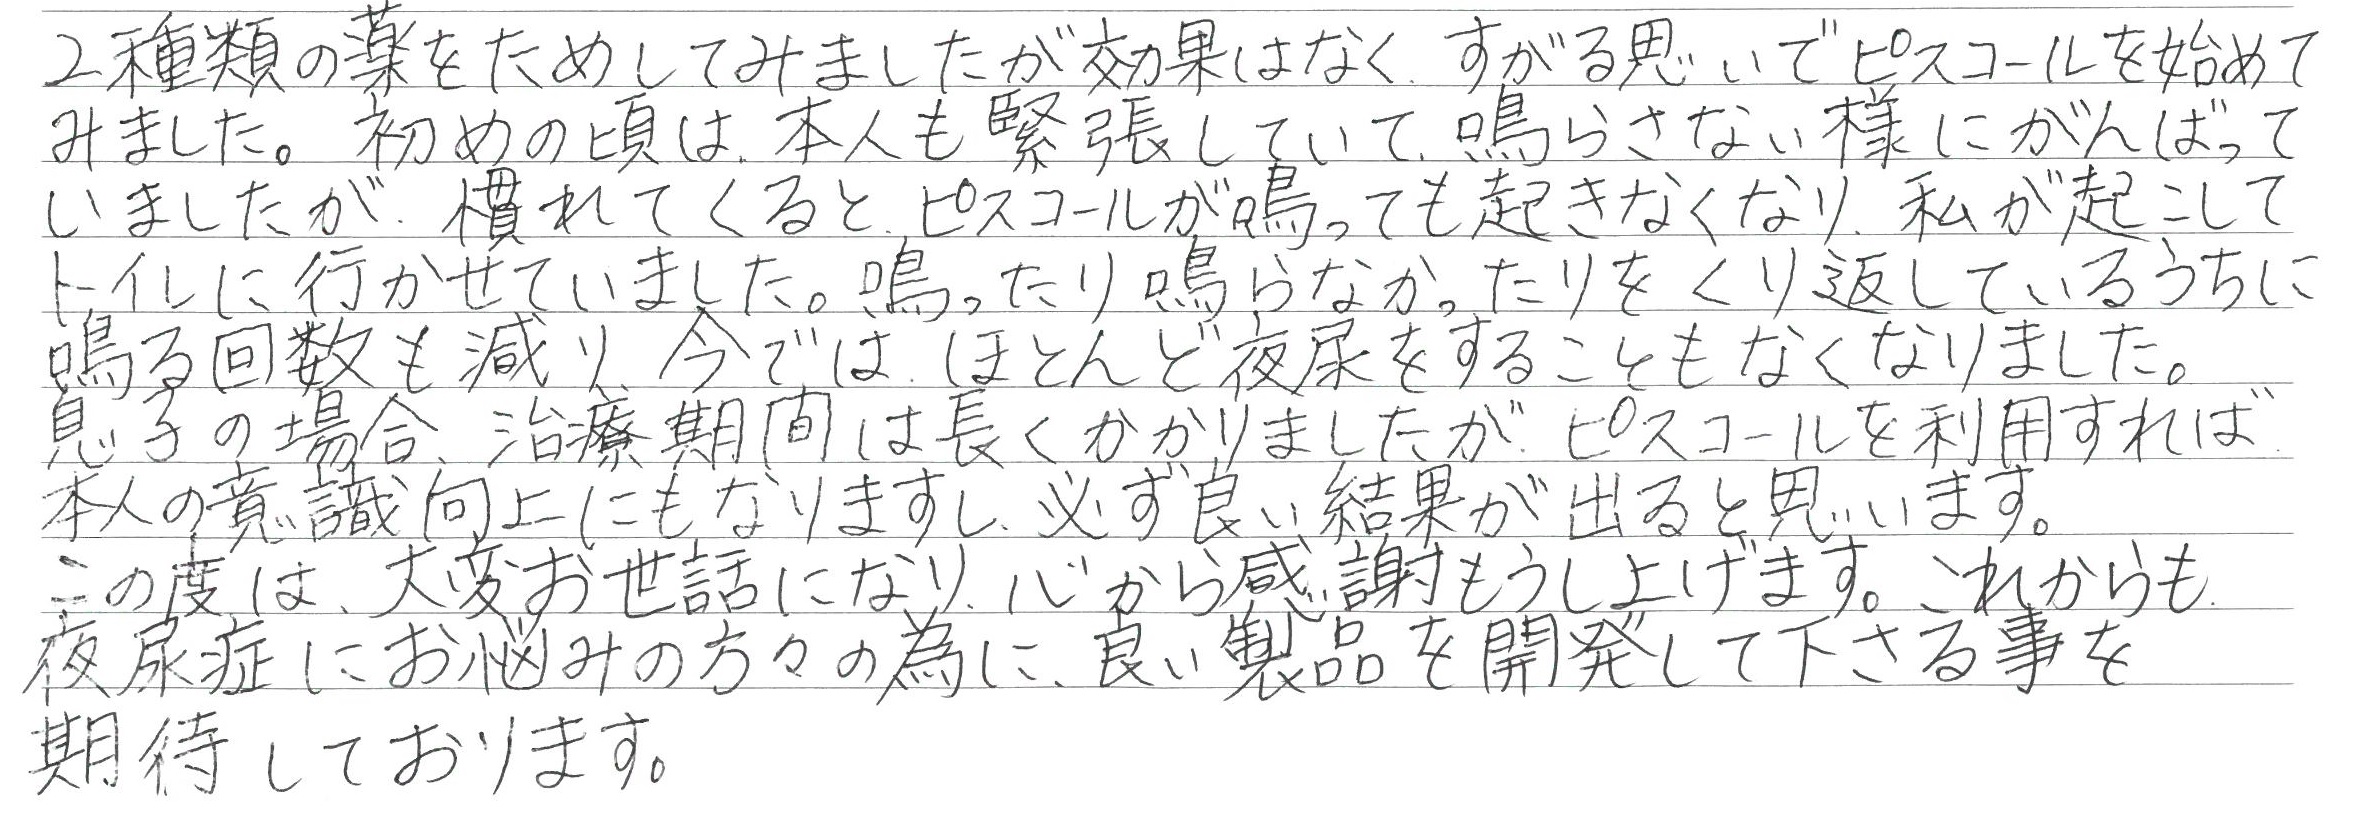 2種類の薬をためしてみましたが効果はなく、すがる思いでピスコールを始めて
みました。初めの頃は、本人も緊張していて、鳴らさない様にがんばって
いましたが、慣れてくると、ピスコールが鳴っても起きなくなり、私が起こして
トイレに行かせていました。鳴ったり鳴らなかったりをくり返しているうちに
鳴る回数も減り、今では、ほとんど夜尿をすることもなくなりました。
息子の場合、治療期間は長くかかりましたが、ピスコールを利用すれば、
本人の意識向上にもなりますし、必ず良い結果が出ると思います。
この度は、大変お世話になり、心から感謝もうし上げます。これからも、
夜尿症にお悩みの方々の為に、良い製品を開発して下さる事を
期待しております。